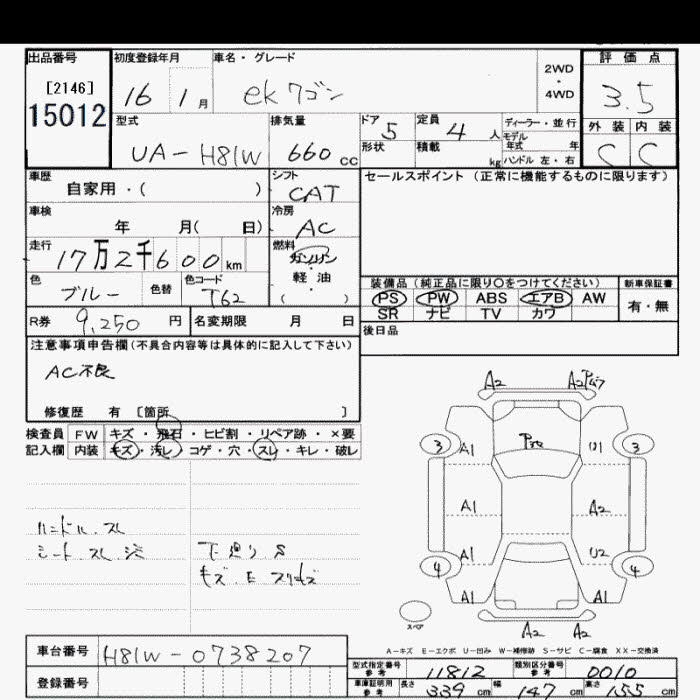 出品番号 初度登録年月 車名・グレード 評価点
[2146] 2WD
16 1月 ekワゴン ・ 3.5
15012 4WD
型式 排気量 ドア 定員 ディーラー・並行 外装 内装
5 4人 モデル年式 年
UA-H81W 660cc 形状 積載 kg ハンドル 左・右 C C
車歴 シフト セールスポイント(正常に機能するものに限ります)
自家用・( ) CAT
車検 冷房
年 月( 日) AC
走行 燃料
17万2千600km ガソリン
色 色替 色コード 軽油 装備品(純正品に限り○をつけてください) 新車保証書
ブルー T62 ( ) PS PW ABS エアB AW 有・無
SR ナビ TV カワ
R券 9,250円 名変期限 月 日 後日品
注意事項申告欄(不具合内容等は具体的に記入して下さい)
AC不良
修復歴 有 [箇所 ]
検査員 FW キズ・飛石・ヒビ割・リペア跡・×要
記入欄 内装 キズ・汚レ・コゲ・穴・スレ・キレ・破レ
A2 A2
3 A1 U1 3
A1 A2
A1 U2
4 A1 A1 4
A2 A2
ハンドル.スレ
シート.スレ 下廻り S
キズ.E
スペア
A-キズ E-エクボ U-凹み W-補修跡 S-サビ C-腐食 XX-交換済
車台番号 H81W-0738207
型式指定番号 参考 11812 類別区分番号 参考 0010
登録番号
車庫証明用 参考 長さ 339cm 幅 147cm 高さ 155cm